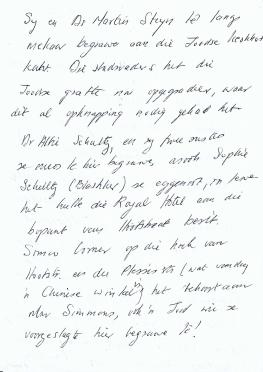 Sy en Dr Martin Steyn lê langs
mekaar begrawe aan die Joodse
kant. Die stadsvaders het die
Joodse grafte nou opgegradeer, waar
dit al opknapping nodig gehad het.
Dr Schultz, en sy twee susters
se ouers lê hier begrawe asook Sophie
Schultz (Blashker) se eggenoot,
het hulle die Royal Hotel aan die
bopunt van Hoofstraat besit.
Simon Corner op die hoek van
Hoofstr. en du Plessis str (wat vandag
'n Chinese winkel is) het behoort aan
Mnr Simmons, ook 'n Jood wie se
voorgeslagte hier begrawe lê!